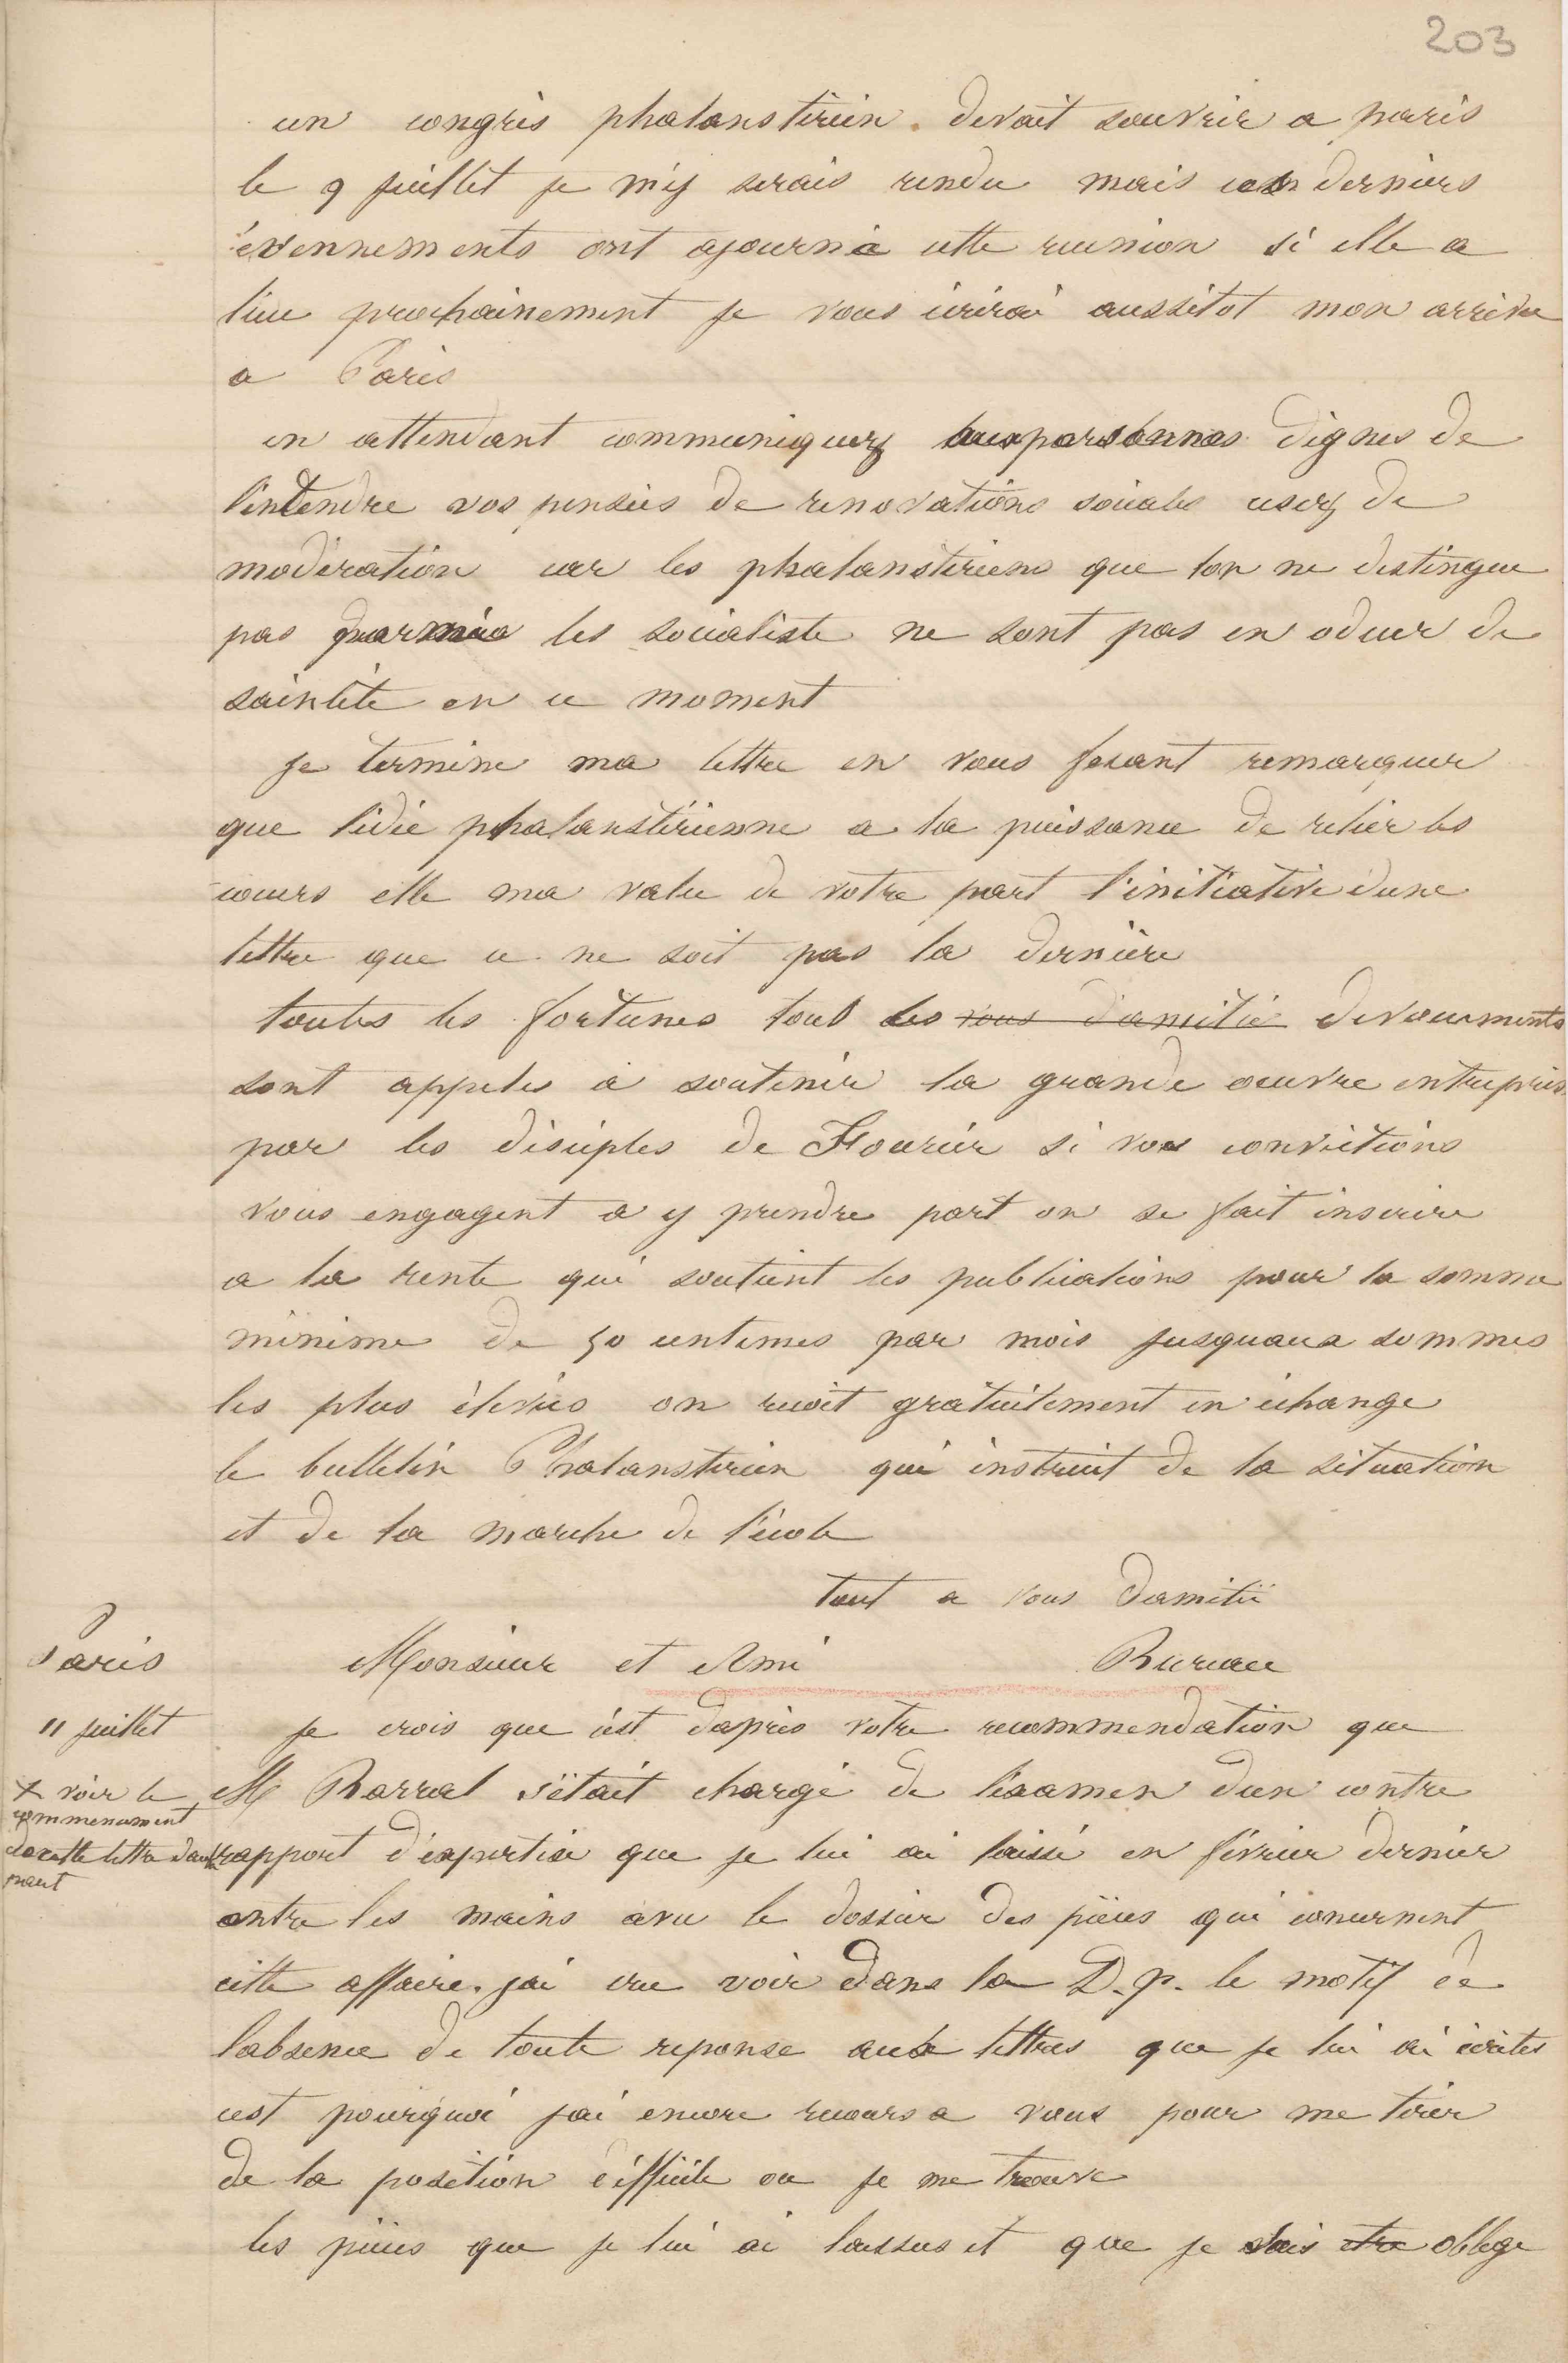 203
un congrès phalanstérien devait souvrir a paris
le 9 juillet je m'y serais rendu mais ces derniers
évennements ont ajourné cette reunion si elle a
lieu prochainement je vous écrirai aussitot mon arrivée
a Paris
en attendant communiquez aux personnes dignes de
l'entendre vos pensées de renovations sociales usez de
modération car les phalanstériens que lon ne destingue
pas parmis les socialiste ne sont pas en odeur de
sainteté en ce moment
je termine ma lettre en vous fesant remarquer
que l'idée phalanstérienne a la puissance de relier les
cœurs elle ma value de votre part l'initiative dune
lettre que ce ne soit pas la dernière
toutes les fortunes tous les vous d'amitié devouements
sont appelés à soutenir la grande œuvre entreprise
par les disciples de Fourier si vos convictions
vous engagent a y prendre part on se fait inscrire
a la rente qui soutient les publications pour la somme
minime de 50 centimes par mois jusquaux sommes
les plus élevées on recoit gratuitement en échange
le bulletin Phalansterien qui instruit de la situation
et de la marche de l'école
tout a vous damitié
Bureau
Paris
11 juillet
Monsieur et Ami
je crois que c'est dapres votre recommendation que
M Barral s'était chargé de l'examen dun contre
+ voir le
commencement
de cette lettre dau
rapport d'expertise que je lui ai laissé en février dernier
entre les mains avec le dossier des pièces qui concernent
cette affaire. jai cru voir dans la D. p. le motif de
labsence de toute reponse aux lettres que je lui ai écrites
cest pourquoi jai encore recours a vous pour me tirer
de la position difficile ou je me trouve
les pièces que je lui ai laissés et que je suis etre obligé